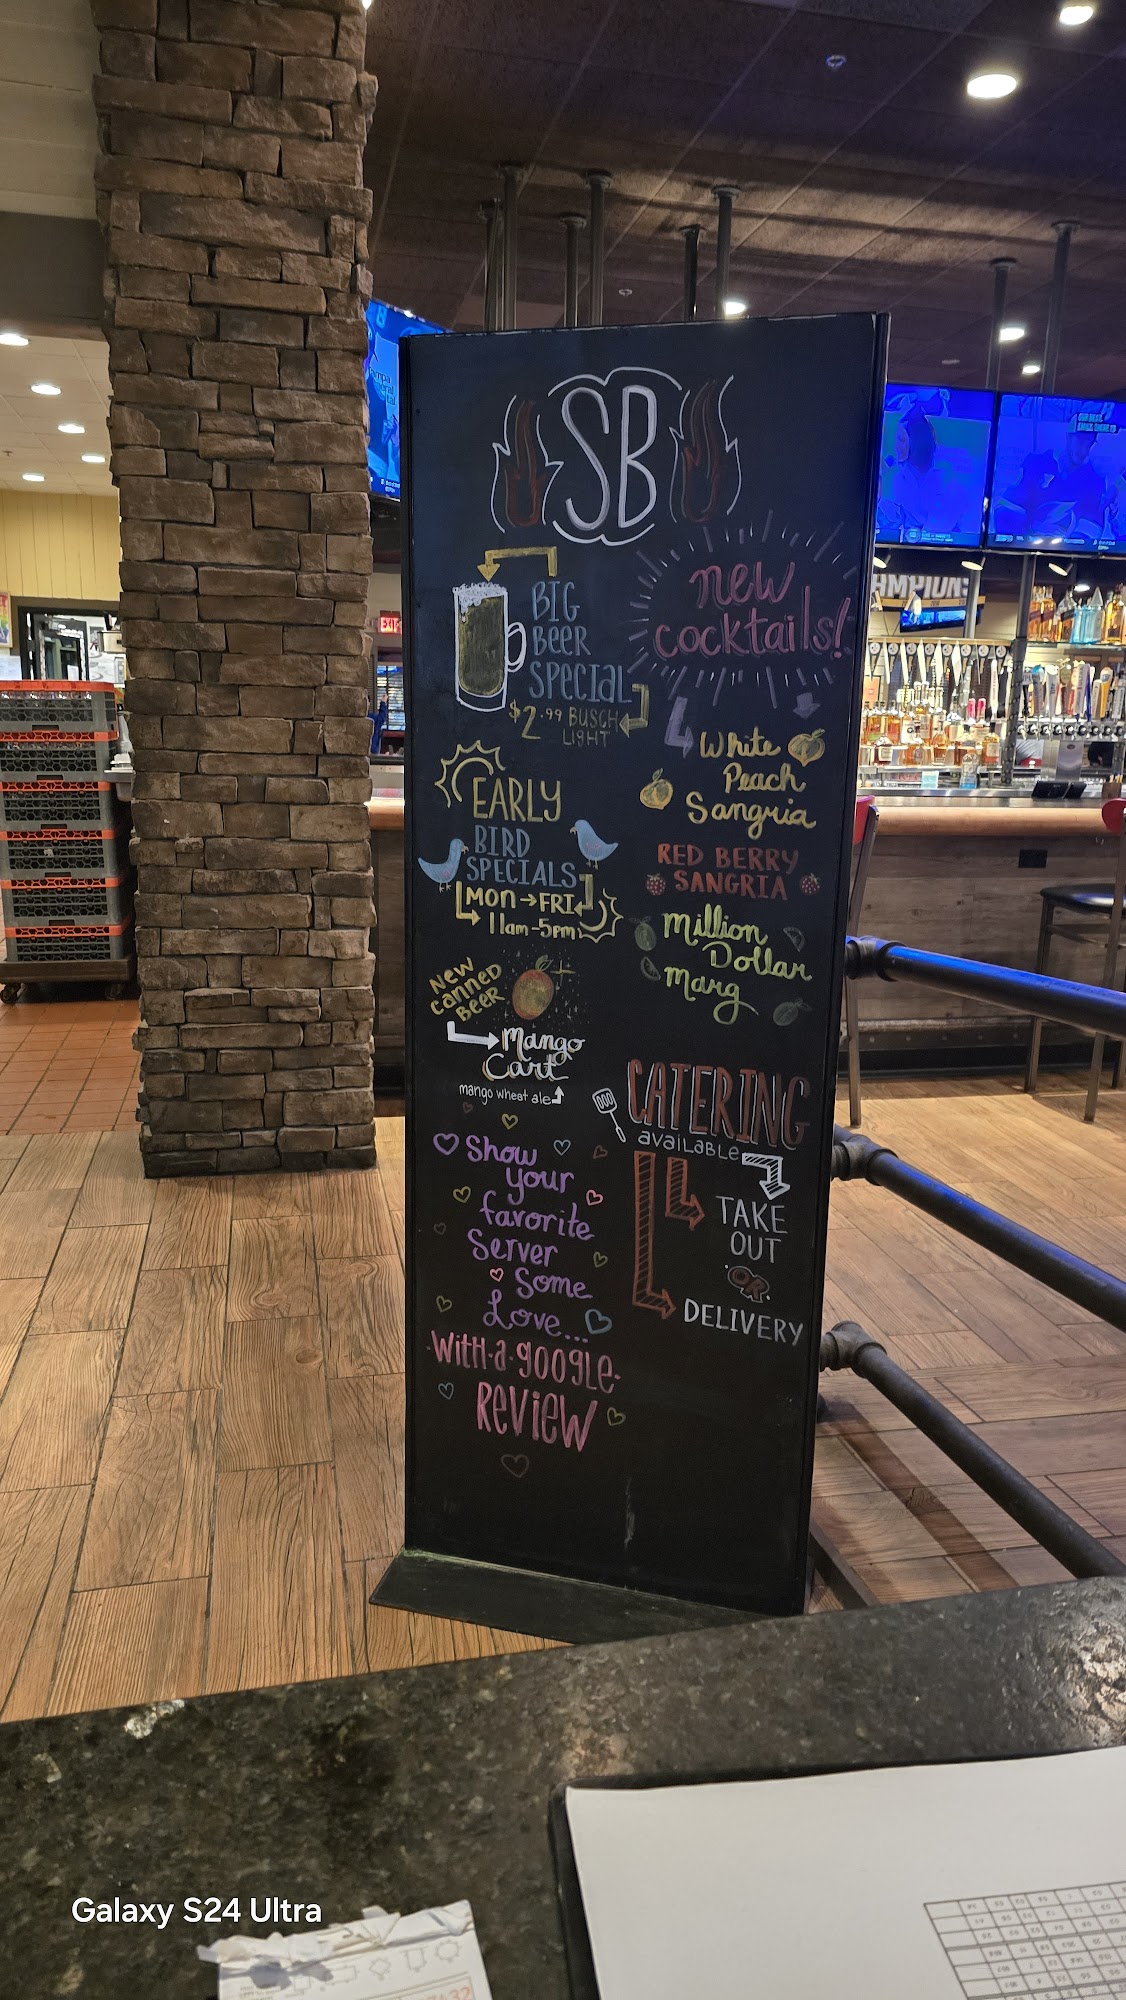 SB
BIG
BEER
SPECIAL
$2.99 BUSCH
LIGHT
EARLY
BIRD
SPECIALS
MON→FRI
11am-5pm
NEW
CANNED
BEER
Mango
Cart
mango wheat ale
Show
your
favorite
Server
Some
Love...
WITH·A·GOOGLE·
REVIEW
new
cocktails!
White
Peach
Sangria
RED BERRY
SANGRIA
Million
Dollar
Marg
CATERING
available
TAKE
OUT
OR
DELIVERY
EXIT
AMPIONS
Galaxy S24 Ultra